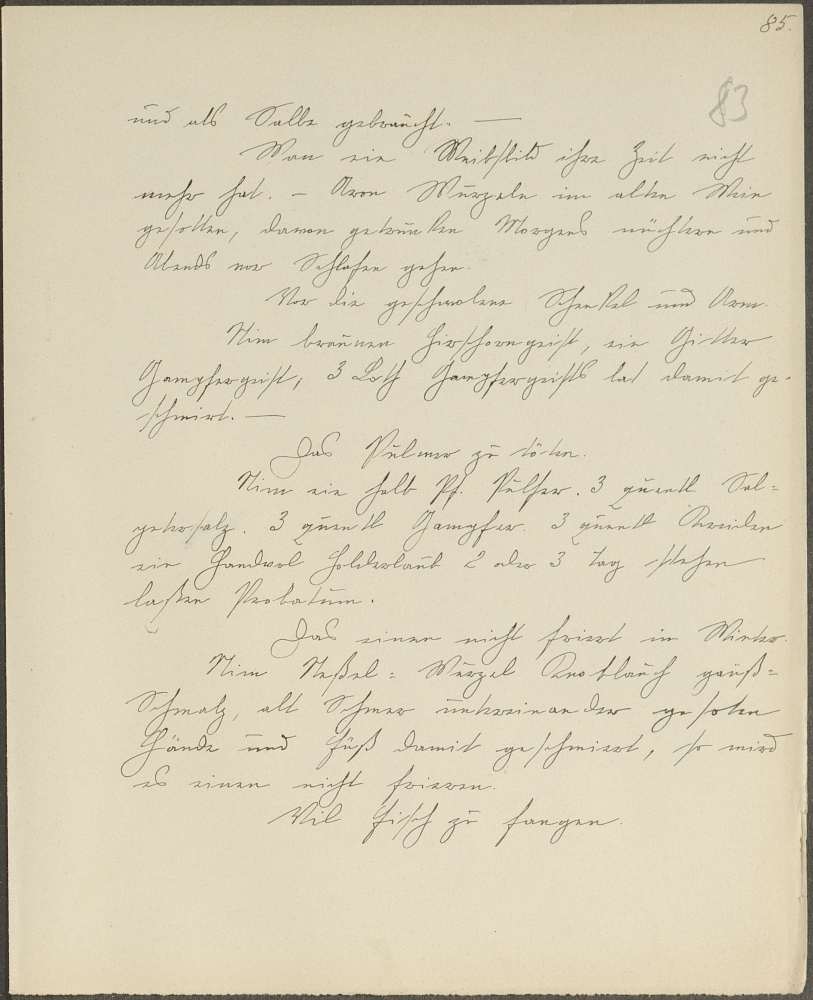 85.
83
und als Salbe gebraucht. —
Wan ein Weibsbild ihre Zeit nicht
mehr hat. – Aron Wurzeln im alten Wein
gesotten, davon getrunken Morgens nüchtern und
Abends vor Schlafen gehen.
Vor die geschwolene Schenkel und Arm.
Nim braunen Hirschorngeist, ein Gitter
Gampfergeist, 3 Loth Gampfergeists lat damit ge-
schmirt. —
Das Pulver zu töten.
Nim ein halb Pf. Pulfer. 3 quentl Sal=
peter salz. 3 quentl Gampfer. 3 quentl Kreiden
ein Handvol Holderlaub 2 oder 3 Tag stehen
laßen Probatum.
Das einen nicht friert im Winter.
Nim Neßel= Wurzel Knoblauch gänß=
Schmalz, alt Schmer untereinander gesoten
Hände und Füß damit geschmiert, so wird
es einen nicht frieren.
Vil Fisch zu fangen.